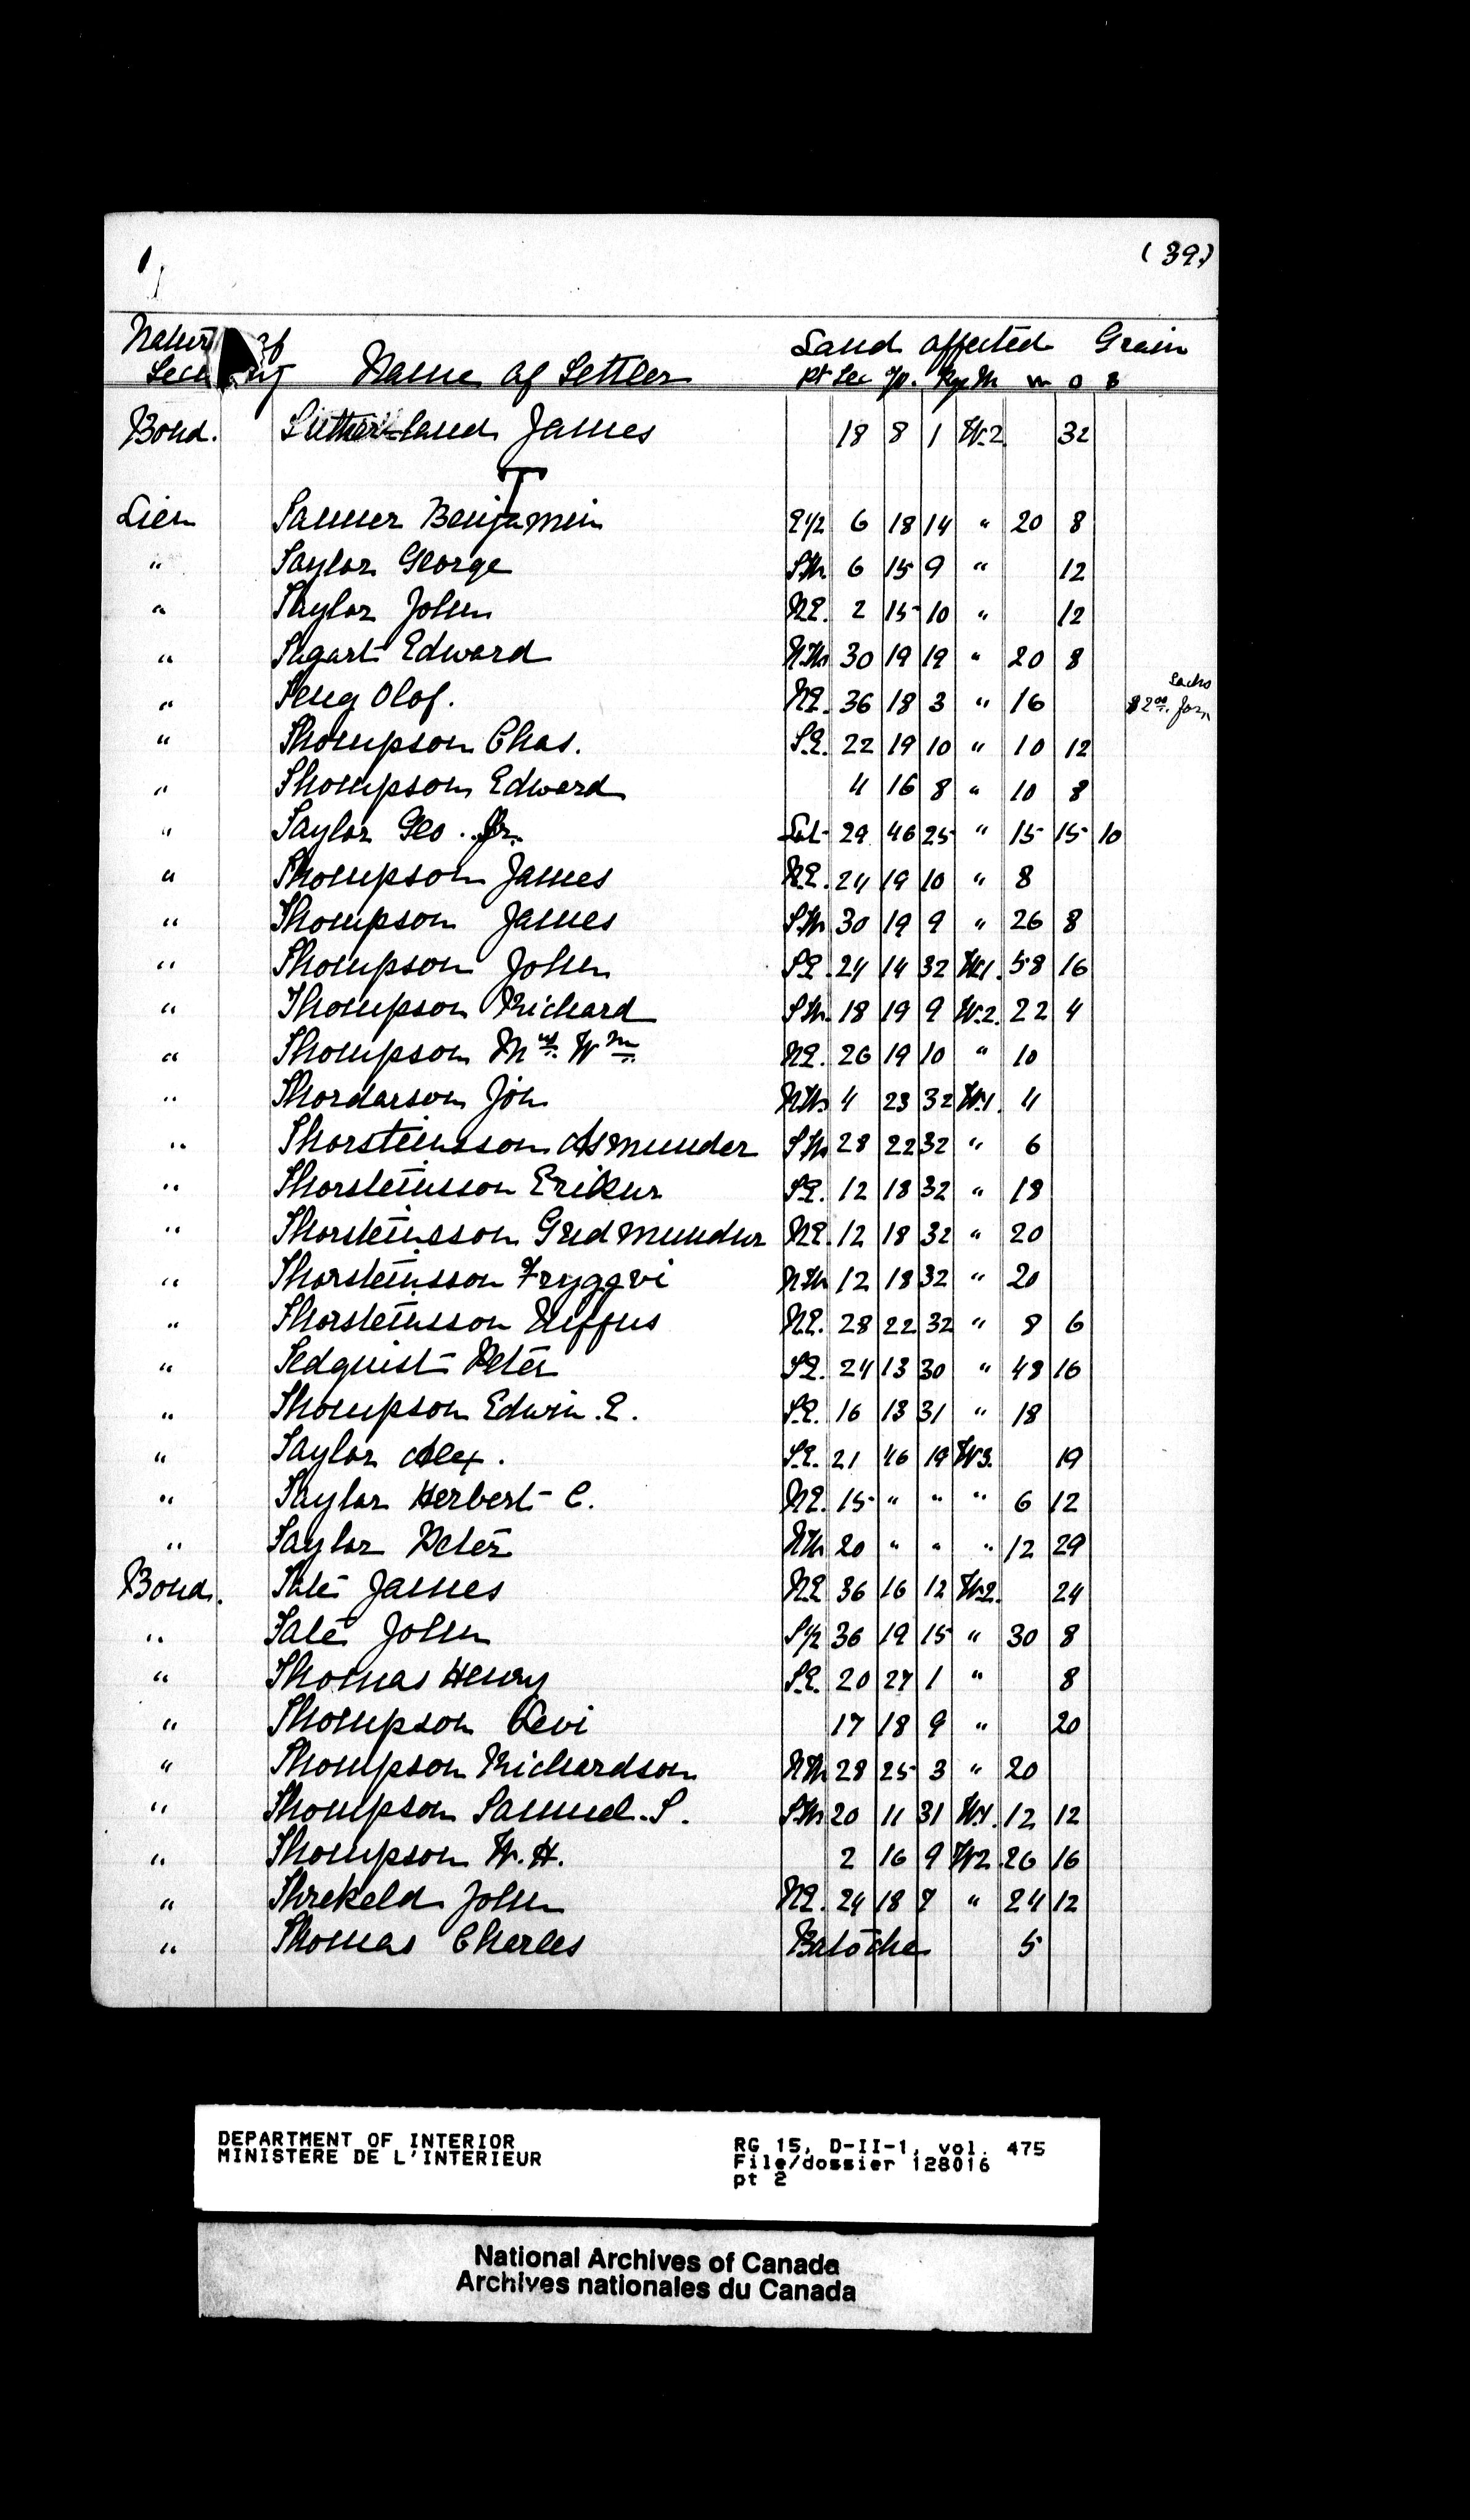 (39)
Nature of Land affected Grain
Security Name of Settler Pt Sec Tp. Rge M W O B
Bond. Sutherland James 18 8 1 W.2 32
T
Lien Tanner Benjamin E1/2 6 18 14 " 20 8
" Taylor George S.W. 6 15 9 " 12
" Taylor John N.E. 2 15 10 " 12
" Tagart Edward N.W. 30 19 19 " 20 8
" Teng Olof. N.E. 36 18 3 " 16 $2.00 for Sacks
" Thompson Chas. S.E. 22 19 10 " 10 12
" Thompson Edward 4 16 8 " 10 8
" Taylor Geo. Jr. Lot 29 46 25 " 15 15 10
" Thompson James N.E. 24 19 10 " 8
" Thompson James S.W. 30 19 9 " 26 8
" Thompson John S.E. 24 14 32 W.1. 58 16
" Thompson Richard S.W. 18 19 9 W.2. 22 4
" Thompson Mrs. Wm N.E. 26 19 10 " 10
" Thordarson Jon N.W. 4 23 32 W.1. 4
" Thorsteinsson Asmunder S.W. 28 22 32 " 6
" Thorsteinsson Erikur S.E. 12 18 32 " 18
" Thorsteinsson Gudmundur N.E. 12 18 32 " 20
" Thorsteinsson Tryggvi N.W. 12 18 32 " 20
" Thorsteinsson N.E. 28 22 32 " 8 6
" Tedquist Peter S.E. 24 13 30 " 48 16
" Thompson Edwin. E. S.E. 16 13 31 " 18
" Taylor Alex. S.E. 21 46 19 W3. 19
" Taylor Herbert C. N.E. 15 " " " 6 12
" Taylor Peter N.W. 20 " " " 12 29
Bond. Tate James N.E. 36 16 12 W.2. 24
" Tate John S1/2 36 19 15 " 30 8
" Thomas Henry S.E. 20 27 1 " 8
" Thompson Levi 17 18 9 " 20
" Thompson Richardson N.W. 28 25 3 " 20
" Thompson Samuel. S. S.W. 20 11 31 W.1. 12 12
" Thompson W. H. 2 16 9 W2 26 16
" Threkeld John N.E. 24 18 7 " 24 12
" Thomas Charles Batoche 5
DEPARTMENT OF INTERIOR RG 15, D-II-1, vol. 475
MINISTERE DE L'INTERIEUR File/dossier 128016
pt 2
National Archives of Canada
Archives nationales du Canada